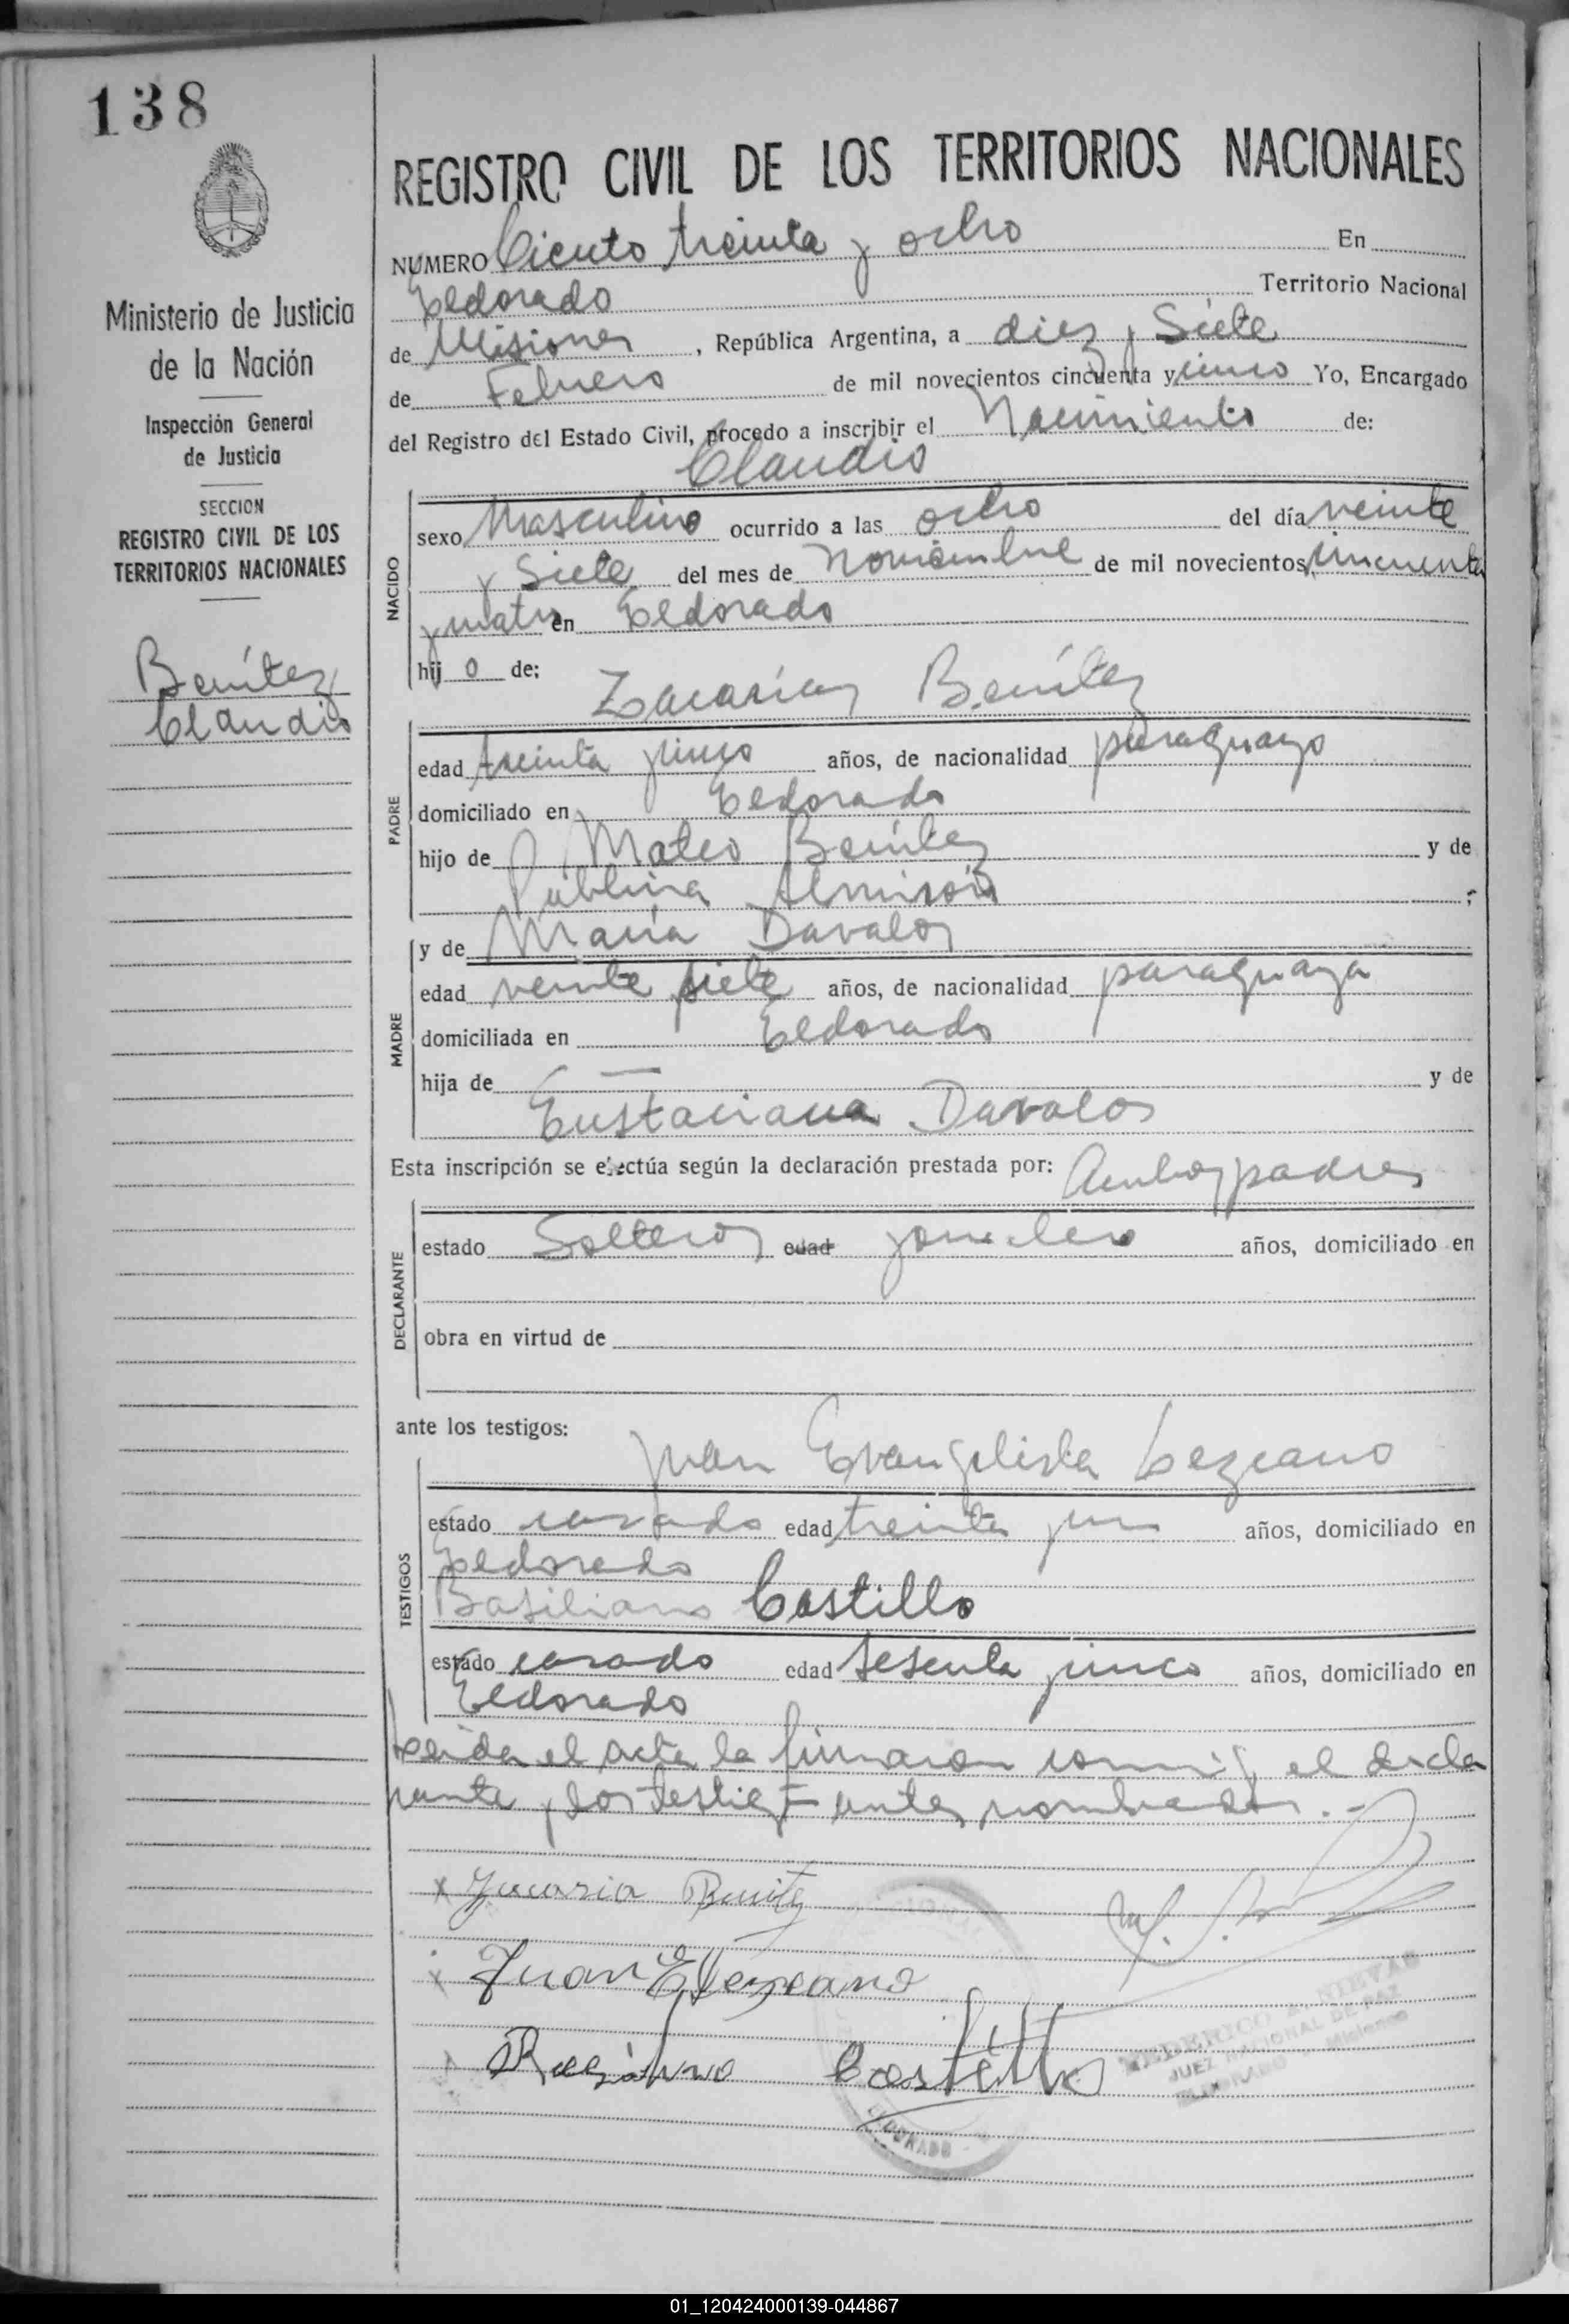 138
Ministerio de Justicia
de la Nación
Inspección General
de Justicia
SECCION
REGISTRO CIVIL DE LOS
TERRITORIOS NACIONALES
Benítez
Claudio
REGISTRO CIVIL DE LOS TERRITORIOS NACIONALES
NUMERO Ciento treinta y ocho En
Eldorado Territorio Nacional
de Misiones, República Argentina, a diez y Siete
de Febrero de mil novecientos cincuenta y cinco Yo, Encargado
del Registro del Estado Civil, procedo a inscribir el Nacimiento de:
Claudio
NACIDO
sexo Masculino ocurrido a las ocho del día veinte
y Siete del mes de noviembre de mil novecientos cincuenta
y cuatro en Eldorado
hijo de:
Zacarías Benítez
PADRE
edad treinta y cinco años, de nacionalidad paraguayo
domiciliado en Eldorado
hijo de Mateo Benítez y de
Publina Almirón ;
MADRE
y de María Davalos
edad veinte y siete años, de nacionalidad paraguaya
domiciliada en Eldorado
hija de — y de
Eustaciana Davalos
Esta inscripción se efectúa según la declaración prestada por: Ambos padres
DECLARANTE
estado Solteros edad jornalero años, domiciliado en
obra en virtud de
ante los testigos:
Juan Evangelista Lezcano
TESTIGOS
estado casado edad treinta años, domiciliado en
Eldorado
Basiliano Castillo
estado casado edad sesenta y cinco años, domiciliado en
Eldorado
Leída el acta la firmaron conmigo el decla
rante y los testigos antes nombrados.-
x Zacaria Benitez
x Juan E Lezcano
Castillo
NIEVAS
JUEZ NACIONAL DE PAZ
ELDORADO - Misiones
ELDORADO
01_120424000139-044867